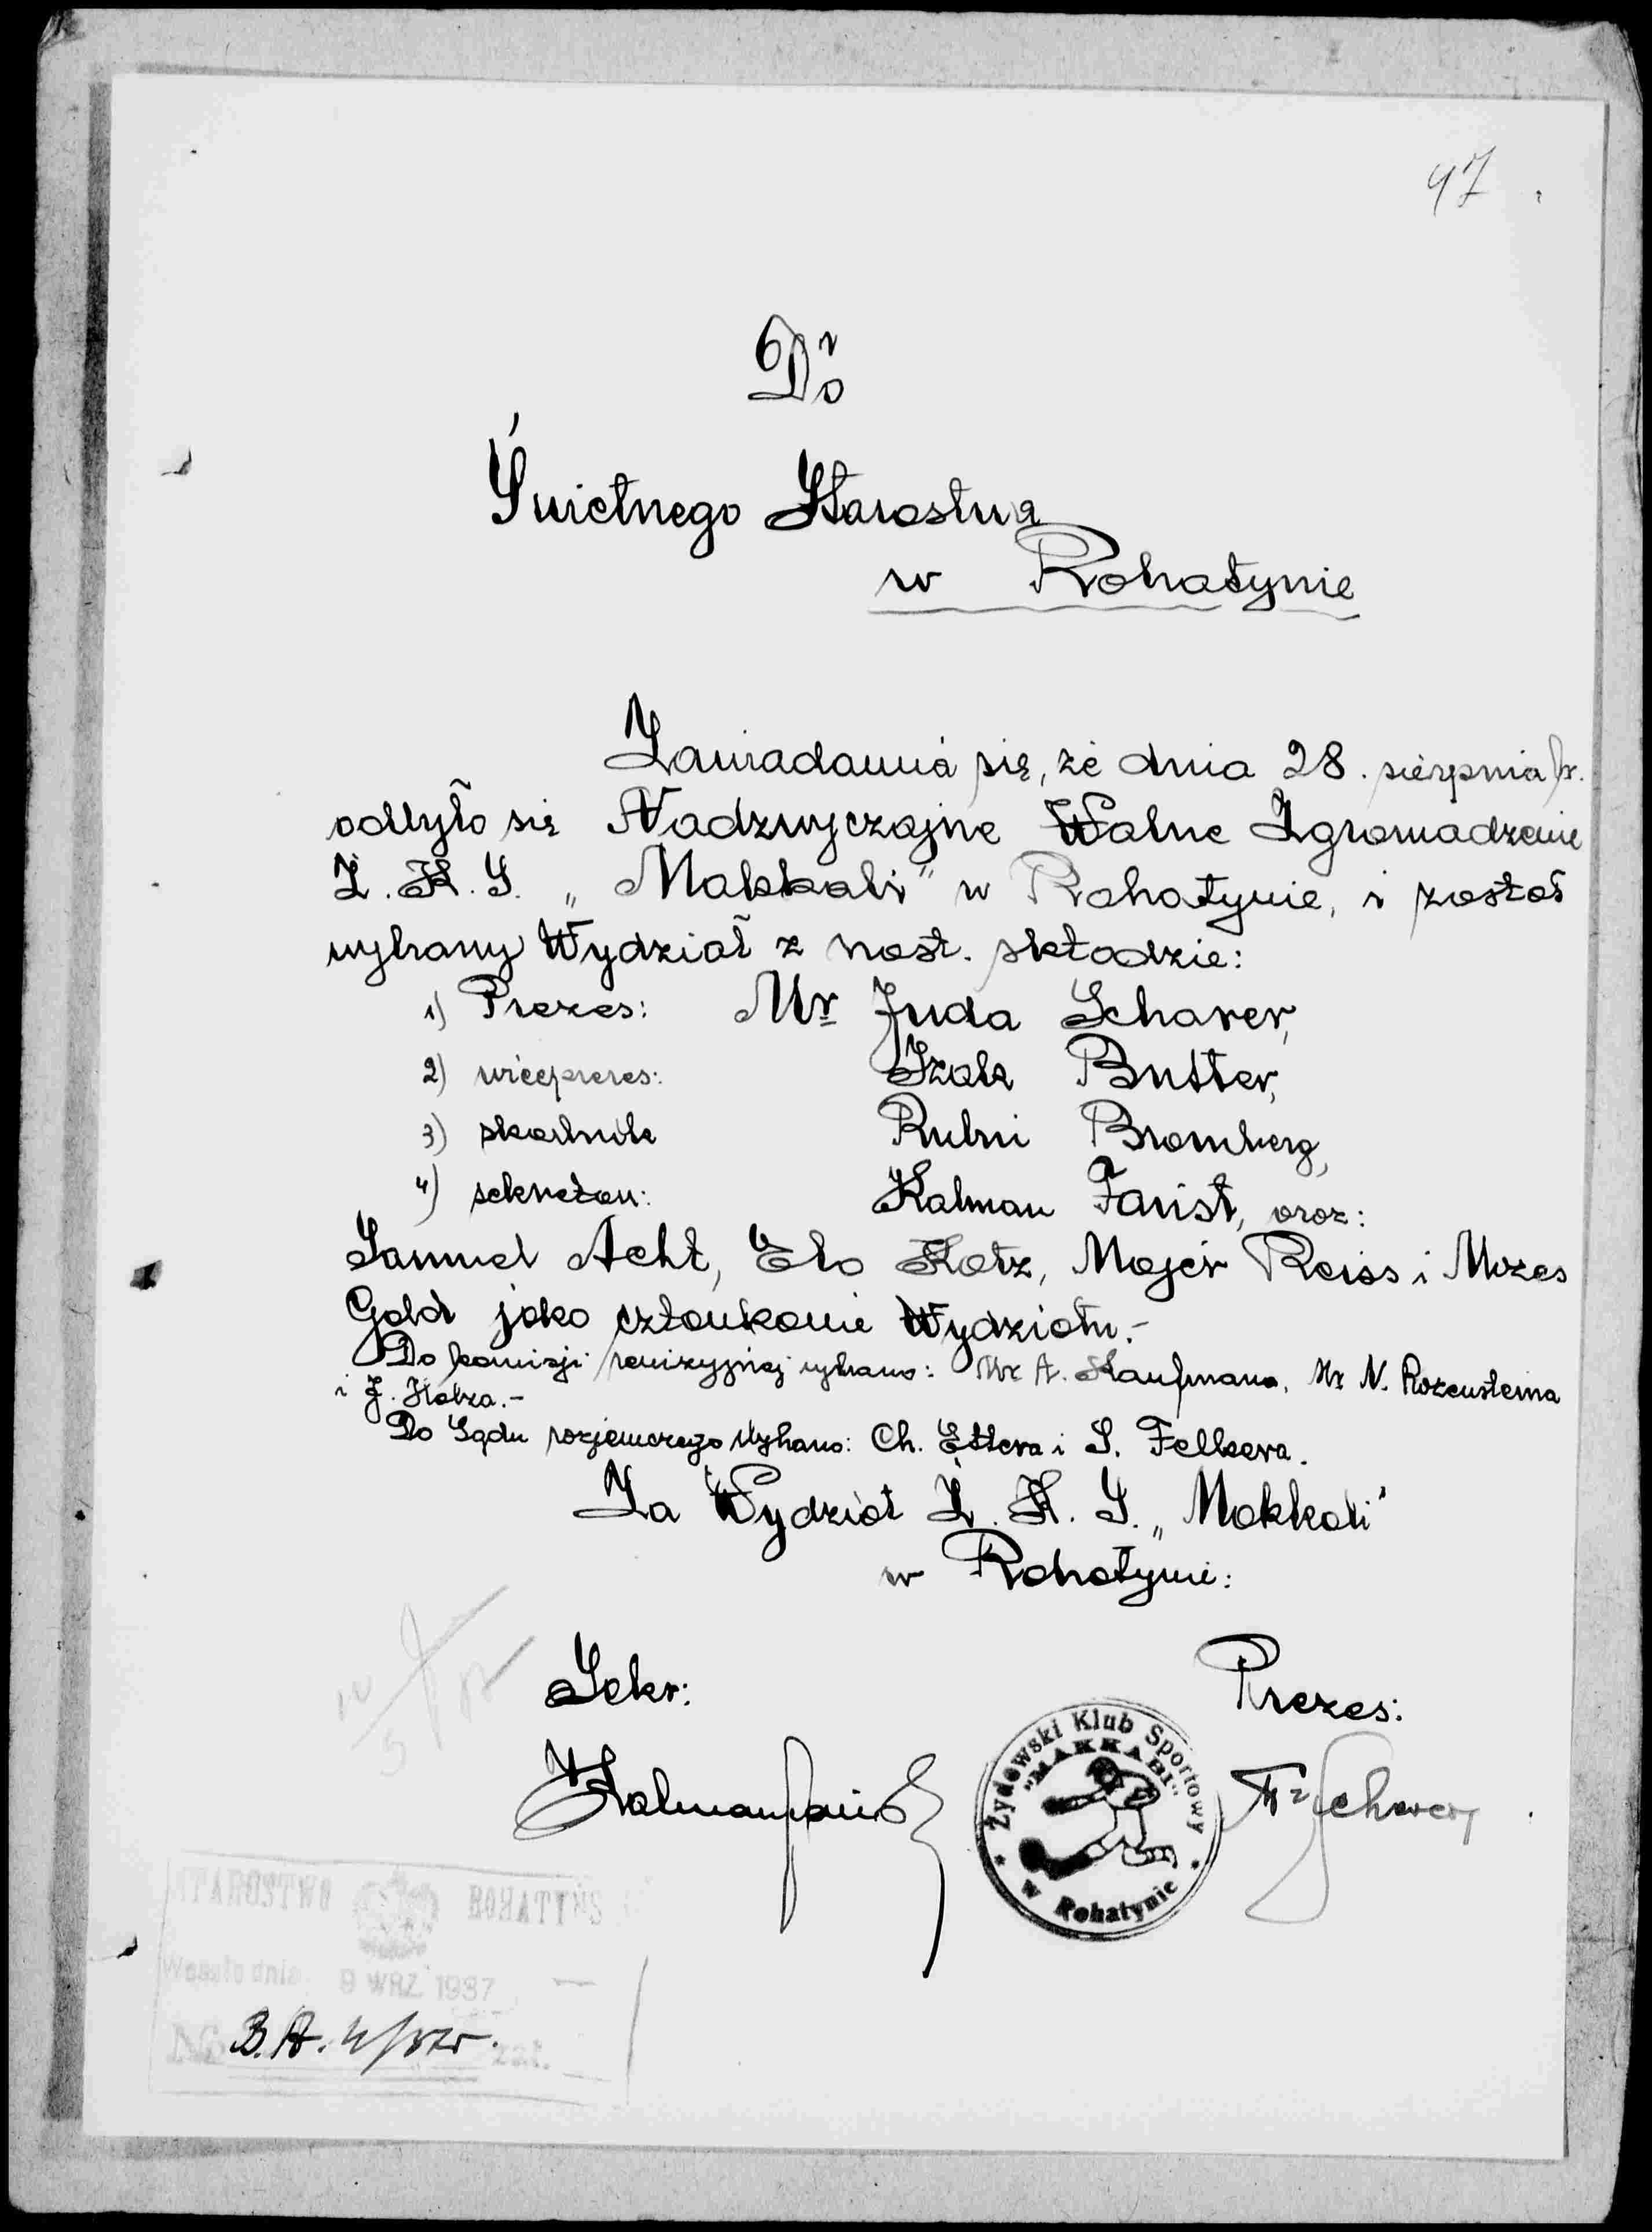 47
Do
Świetnego Starostwa
w Rohatynie
Zawiadamia się, że dnia 28. sierpnia br.
odbyło się Nadzwyczajne Walne Zgromadzenie
Ż. K. S. „Makkabi" w Rohatynie, i został
wybrany Wydział z nast. składzie:
1) Prezes: Mr Juda Scharer,
2) wiceprezes: Izak Butter,
3) skarbnik Rubin Bromberg,
4) sekretarz: Kalman Faust, oraz:
Samuel Acht, Elo Katz, Majer Reiss i Mozes
Gold jako członkowie Wydziału.-
Do komisji rewizyjnej wybrano: Mr A. Kaufmana, Mr N. Rozensteina
i J. Holza.-
Do Sądu rozjemczego wybrano: Ch. Ettera i S. Felkera.
Za Wydział Ż. K. S. „Makkabi"
w Rohatynie:
Sekr: Prezes:
Kalman Faust Mr Scharer
Żydowski Klub Sportowy
"MAKKABI"
w Rohatynie
STAROSTWO ROHATYŃS
Weszło dnia 9 WRZ. 1937
No B.A. zał.